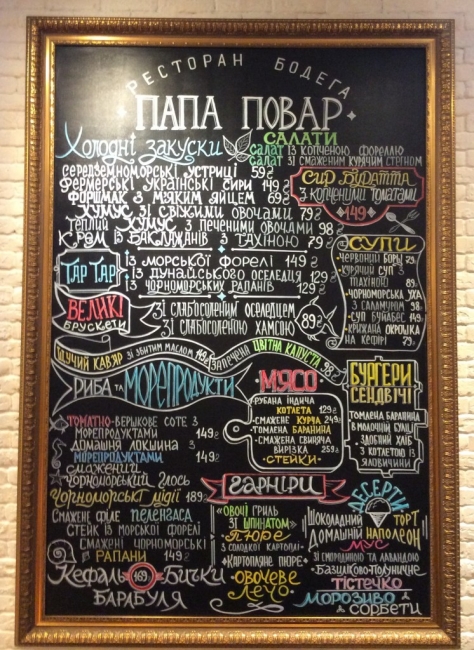 РЕСТОРАН БОДЕГА
ПАПА ПОВАР
Холодні закуски
СЕРЕДЗЕМНОМОРСЬКІ УСТРИЦІ 59₴
ФЕРМЕРСЬКІ УКРАЇНСЬКІ СИРИ 149₴
ФОРШМАК З М'ЯКИМ ЯЙЦЕМ 69₴
ХУМУС ЗІ СВІЖИМИ ОВОЧАМИ 79₴
ТЕПЛИЙ ХУМУС З ПЕЧЕНИМИ ОВОЧАМИ 98₴
КРЕМ ІЗ БАКЛАЖАНІВ ТАХІНОЮ 79₴
САЛАТИ
САЛАТ ІЗ КОПЧЕНОЮ ФОРЕЛЛЮ
САЛАТ ЗІ СМАЖЕНИМ КУРЯЧИМ СТЕГНОМ
СИР БУРАТТА
З КОПЧЕНИМИ ТОМАТАМИ
149
ТАР ТАР
ІЗ МОРСЬКОЇ ФОРЕЛІ 149₴
ІЗ ДУНАЙСЬКОГО ОСЕЛЕДЦЯ 129₴
ІЗ ЧОРНОМОРСЬКИХ РАПАНІВ 129₴
ВЕЛИКІ
БРУСКЕТИ
ЗІ СЛАБОСОЛЕНИМ ОСЕЛЕДЦЕМ
ЗІ СЛАБОСОЛЕНОЮ ХАМСОЮ
89₴
СУПИ
ЧЕРВОНИЙ БОРЩ
КУРЯЧИЙ СУП З
89₴
ЧОРНОМОРСЬКА УХА
З САЛАМУРОМ 98₴
СУП БУЙАБЕС 149₴
КРИЖАНА ОКРОШКА
НА КЕФІРІ 79₴
ЩУЧИЙ КАВ'ЯР
ЗІ ЗБИТИМ МАСЛОМ
ЗАПЕЧЕНА ЦВІТНА КАПУСТА 98₴
РИБА ТА МОРЕПРОДУКТИ
ТОМАТНО-ВЕРШКОВЕ СОТЕ З
МОРЕПРОДУКТАМИ 149₴
ДОМАШНЯ ЛОКШИНА З
МОРЕПРОДУКТАМИ 149₴
СМАЖЕНИЙ
ЧОРНОМОРСЬКИЙ ГЛОСЬ
ЧОРНОМОРСЬКІ МІДІЇ 189₴
СМАЖЕНЕ ФІЛЕ ПЕЛЕНГАСА
СТЕЙК ІЗ МОРСЬКОЇ ФОРЕЛІ
СМАЖЕНІ ЧОРНОМОРСЬКІ
РАПАНИ 149₴
КЕФАЛЬ 169 БИЧКИ
БАРАБУЛЯ
МЯСО
РУБАНА ІНДИЧА
КОТЛЕТА 129₴
СМАЖЕНЕ КУРЧА 249₴
ТОМЛЕНА БАРАНИНА
СМАЖЕНА СВИНЯЧА
ВИРІЗКА 259₴
СТЕЙКИ
БУРГЕРИ
СЕНДВІЧІ
ТОМЛЕНА БАРАНИНА
В МОЛОЧНІЙ БУЛЦІ
ЗДОБНИЙ ХЛІБ
З КОТЛЕТОЮ ІЗ
ЯЛОВИЧИНИ
ГАРНІРИ
ОВОЧІ ГРИЛЬ
ЗІ ШПИНАТОМ
ПЮРЕ
З СОЛОДКОЇ КАРТОПЛІ
КАРТОПЛЯНЕ ПЮРЕ
ОВОЧЕВЕ
ЛЕЧО
ДЕСЕРТИ
ШОКОЛАДНИЙ ТОРТ
ДОМАШНІЙ НАПОЛЕОН
МУС
ЗІ СМОРОДИНОЮ ТА ЛАВАНДОЮ
БАЗИЛІКОВО-ПОЛУНИЧНЕ
ТІСТЕЧКО
МОРОЗИВО
СОРБЕТИ